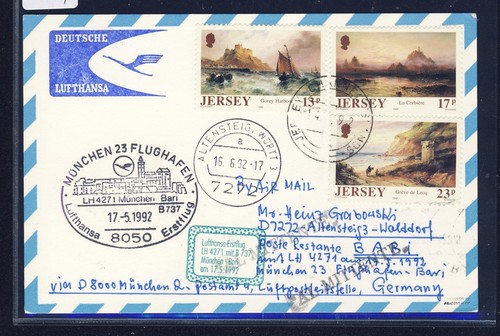 DEUTSCHE
LUFTHANSA
Gorey Harbour
JERSEY 13P
La Corbière
JERSEY 17P
Grève de Lecq
JERSEY 23P
MÜNCHEN 23 FLUGHAFEN
LH 4271 München Bari
B737
17-5.1992
Lufthansa Erstflug
8050
ALTENSTEIG, WÜRTT
a
16.6.92-17
7272
Lufthansa-Erstflug
LH 4271 mit B 737
München Bari
am 17.5.1992
By AIR MAIL
Mr. Heinz Grabowski
D7272 Altensteig 3-Walddorf
Poste Restante BARI
mit LH 4271 am 17.5.1992
München 23 Flughafen - Bari
via D 8000 München 2, Postamt 4, Luftpostleitstelle, Germany